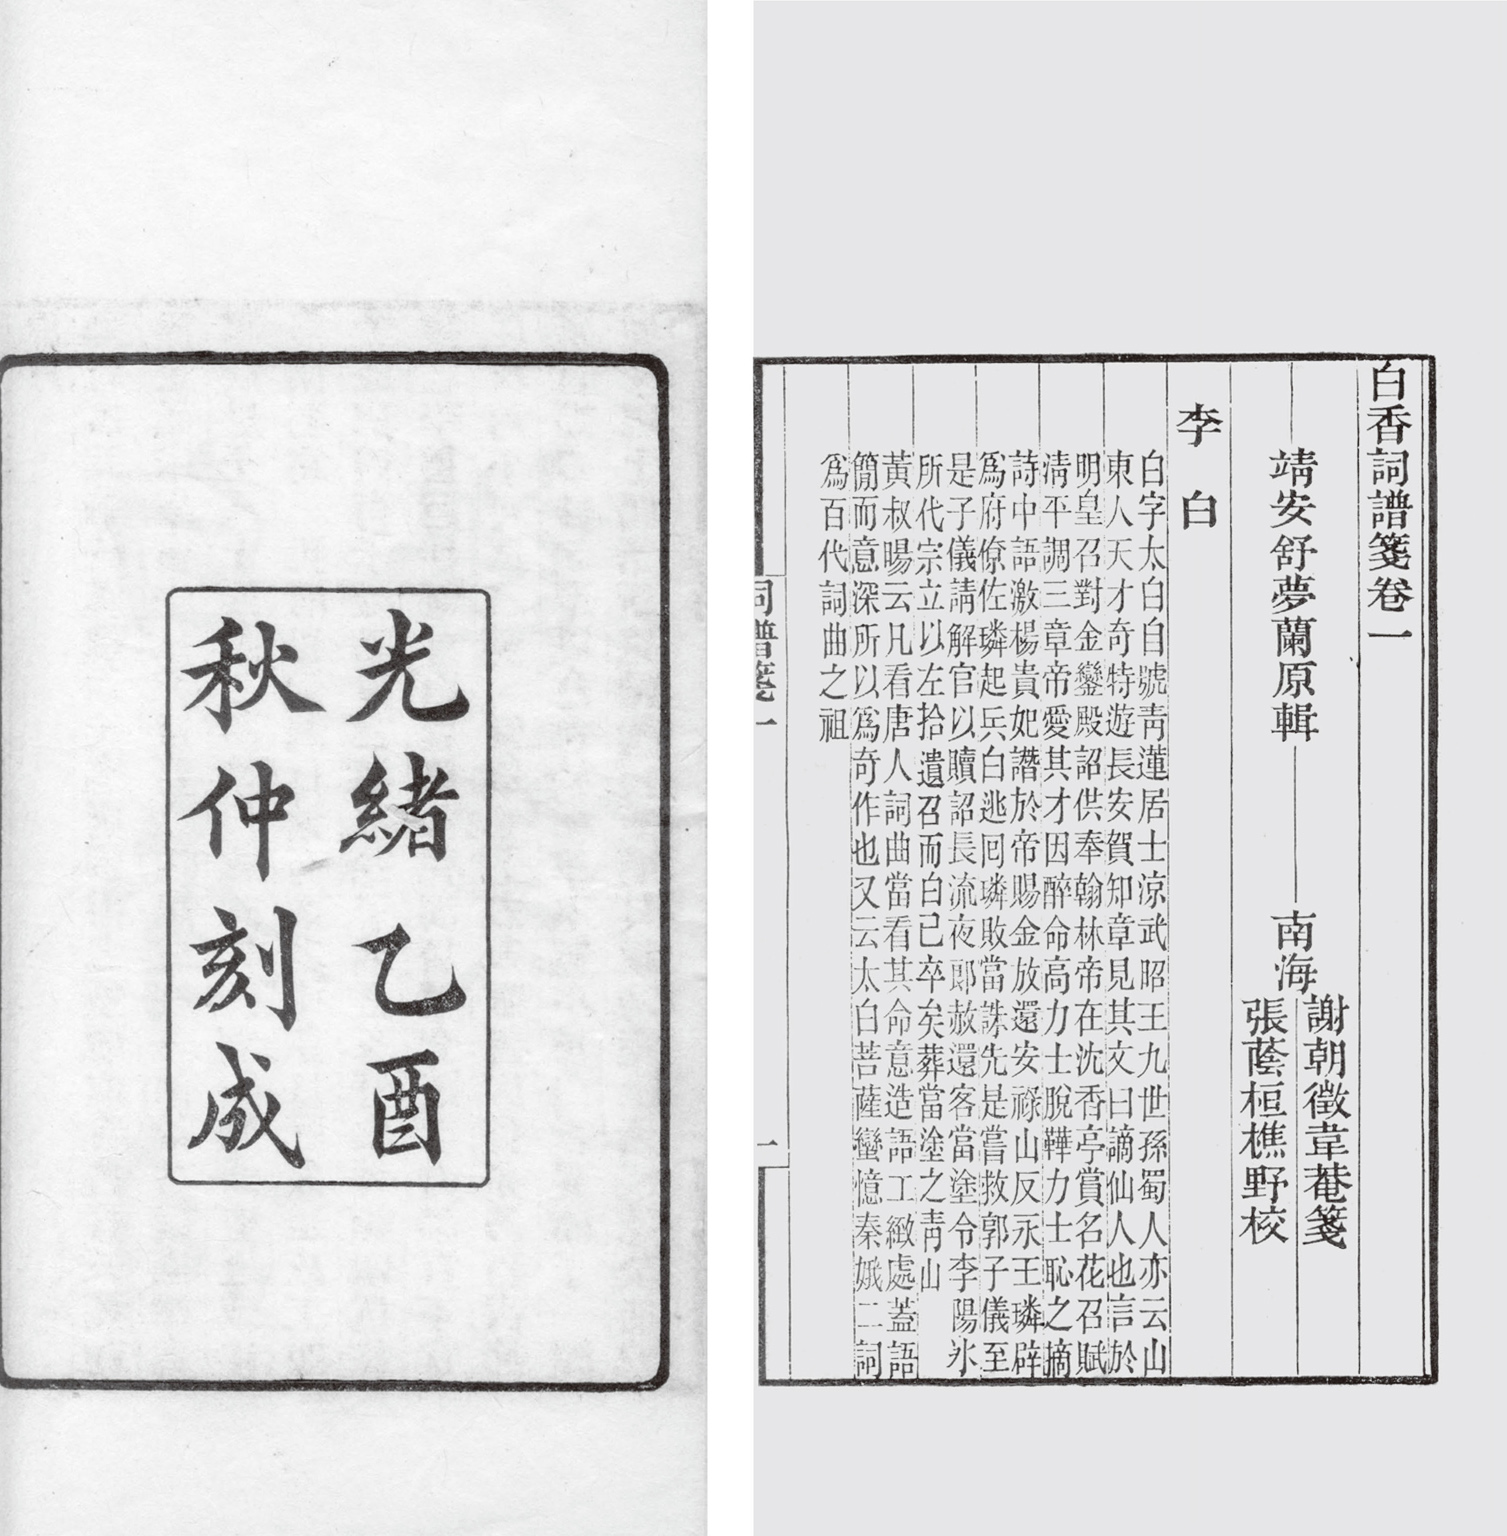 光緒乙酉
秋仲刻成
白香詞譜箋卷一
靖安舒夢蘭原輯
南海
謝朝徵韋菴箋
張蔭桓樵野校
李白
白字太白自號青蓮居士涼武昭王九世孫蜀人亦云山
東人天才奇特遊長安賀知章見其文曰謫仙人也言於
明皇召對金鑾殿詔供奉翰林帝在沈香亭賞名花召賦
清平調三章帝愛其才因醉命高力士脫鞾力士恥之摘
詩中語激楊貴妃譖於帝賜金放還安祿山反永王璘辟
爲府僚佐璘起兵白逃回璘敗當誅先是嘗救郭子儀至
是子儀請解官以贖詔長流夜郎赦還客當塗令李陽冰
所代宗立以左拾遺召而白已卒矣葬當塗之青山
黃叔暘云凡看唐人詞曲當看其命意造語工緻處蓋語
簡而意深所以爲奇作也又云太白菩薩蠻憶秦娥二詞
爲百代詞曲之祖
詞譜箋一
一